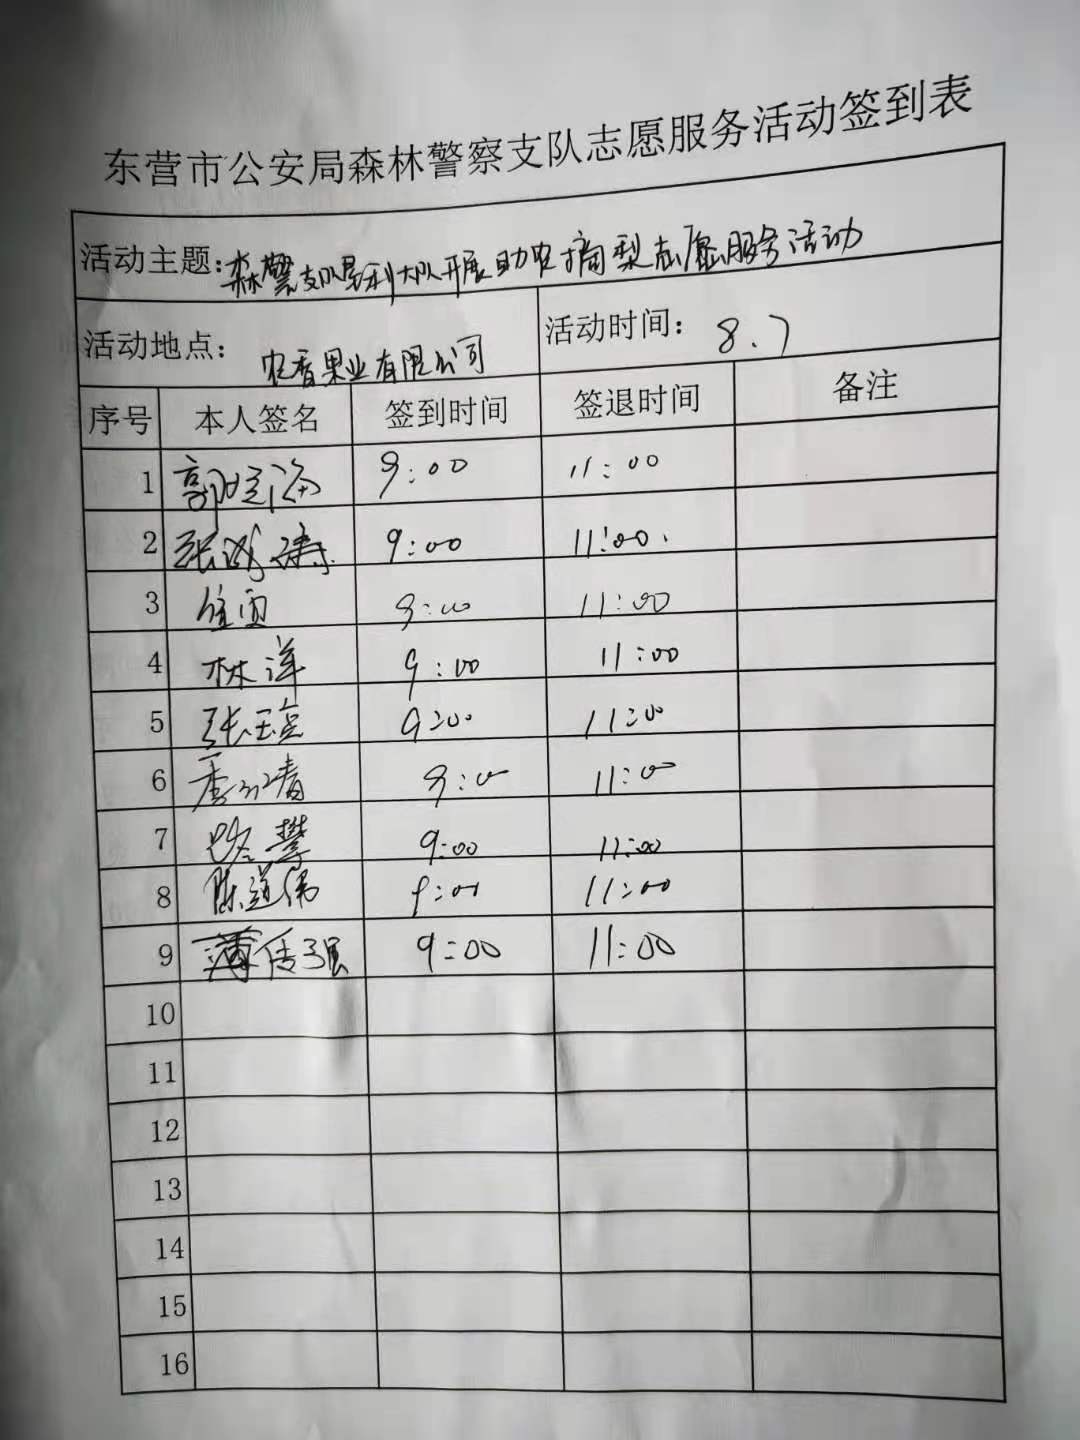 东营市公安局森林警察支队志愿服务活动签到表
活动主题：森警支队垦利大队开展助农摘梨志愿服务活动
活动地点：农香果业有限公司 活动时间：8.7
序号 本人签名 签到时间 签退时间 备注
1 郭 海 9:00 11:00
2 张 涛 9:00 11:00
3 9:00 11:00
4 林洋 9:00 11:00
5 张玉 9:00 11:00
6 9:00 11:00
7 9:00 11:00
8 陈道伟 9:00 11:00
9 薄传强 9:00 11:00
10
11
12
13
14
15
16